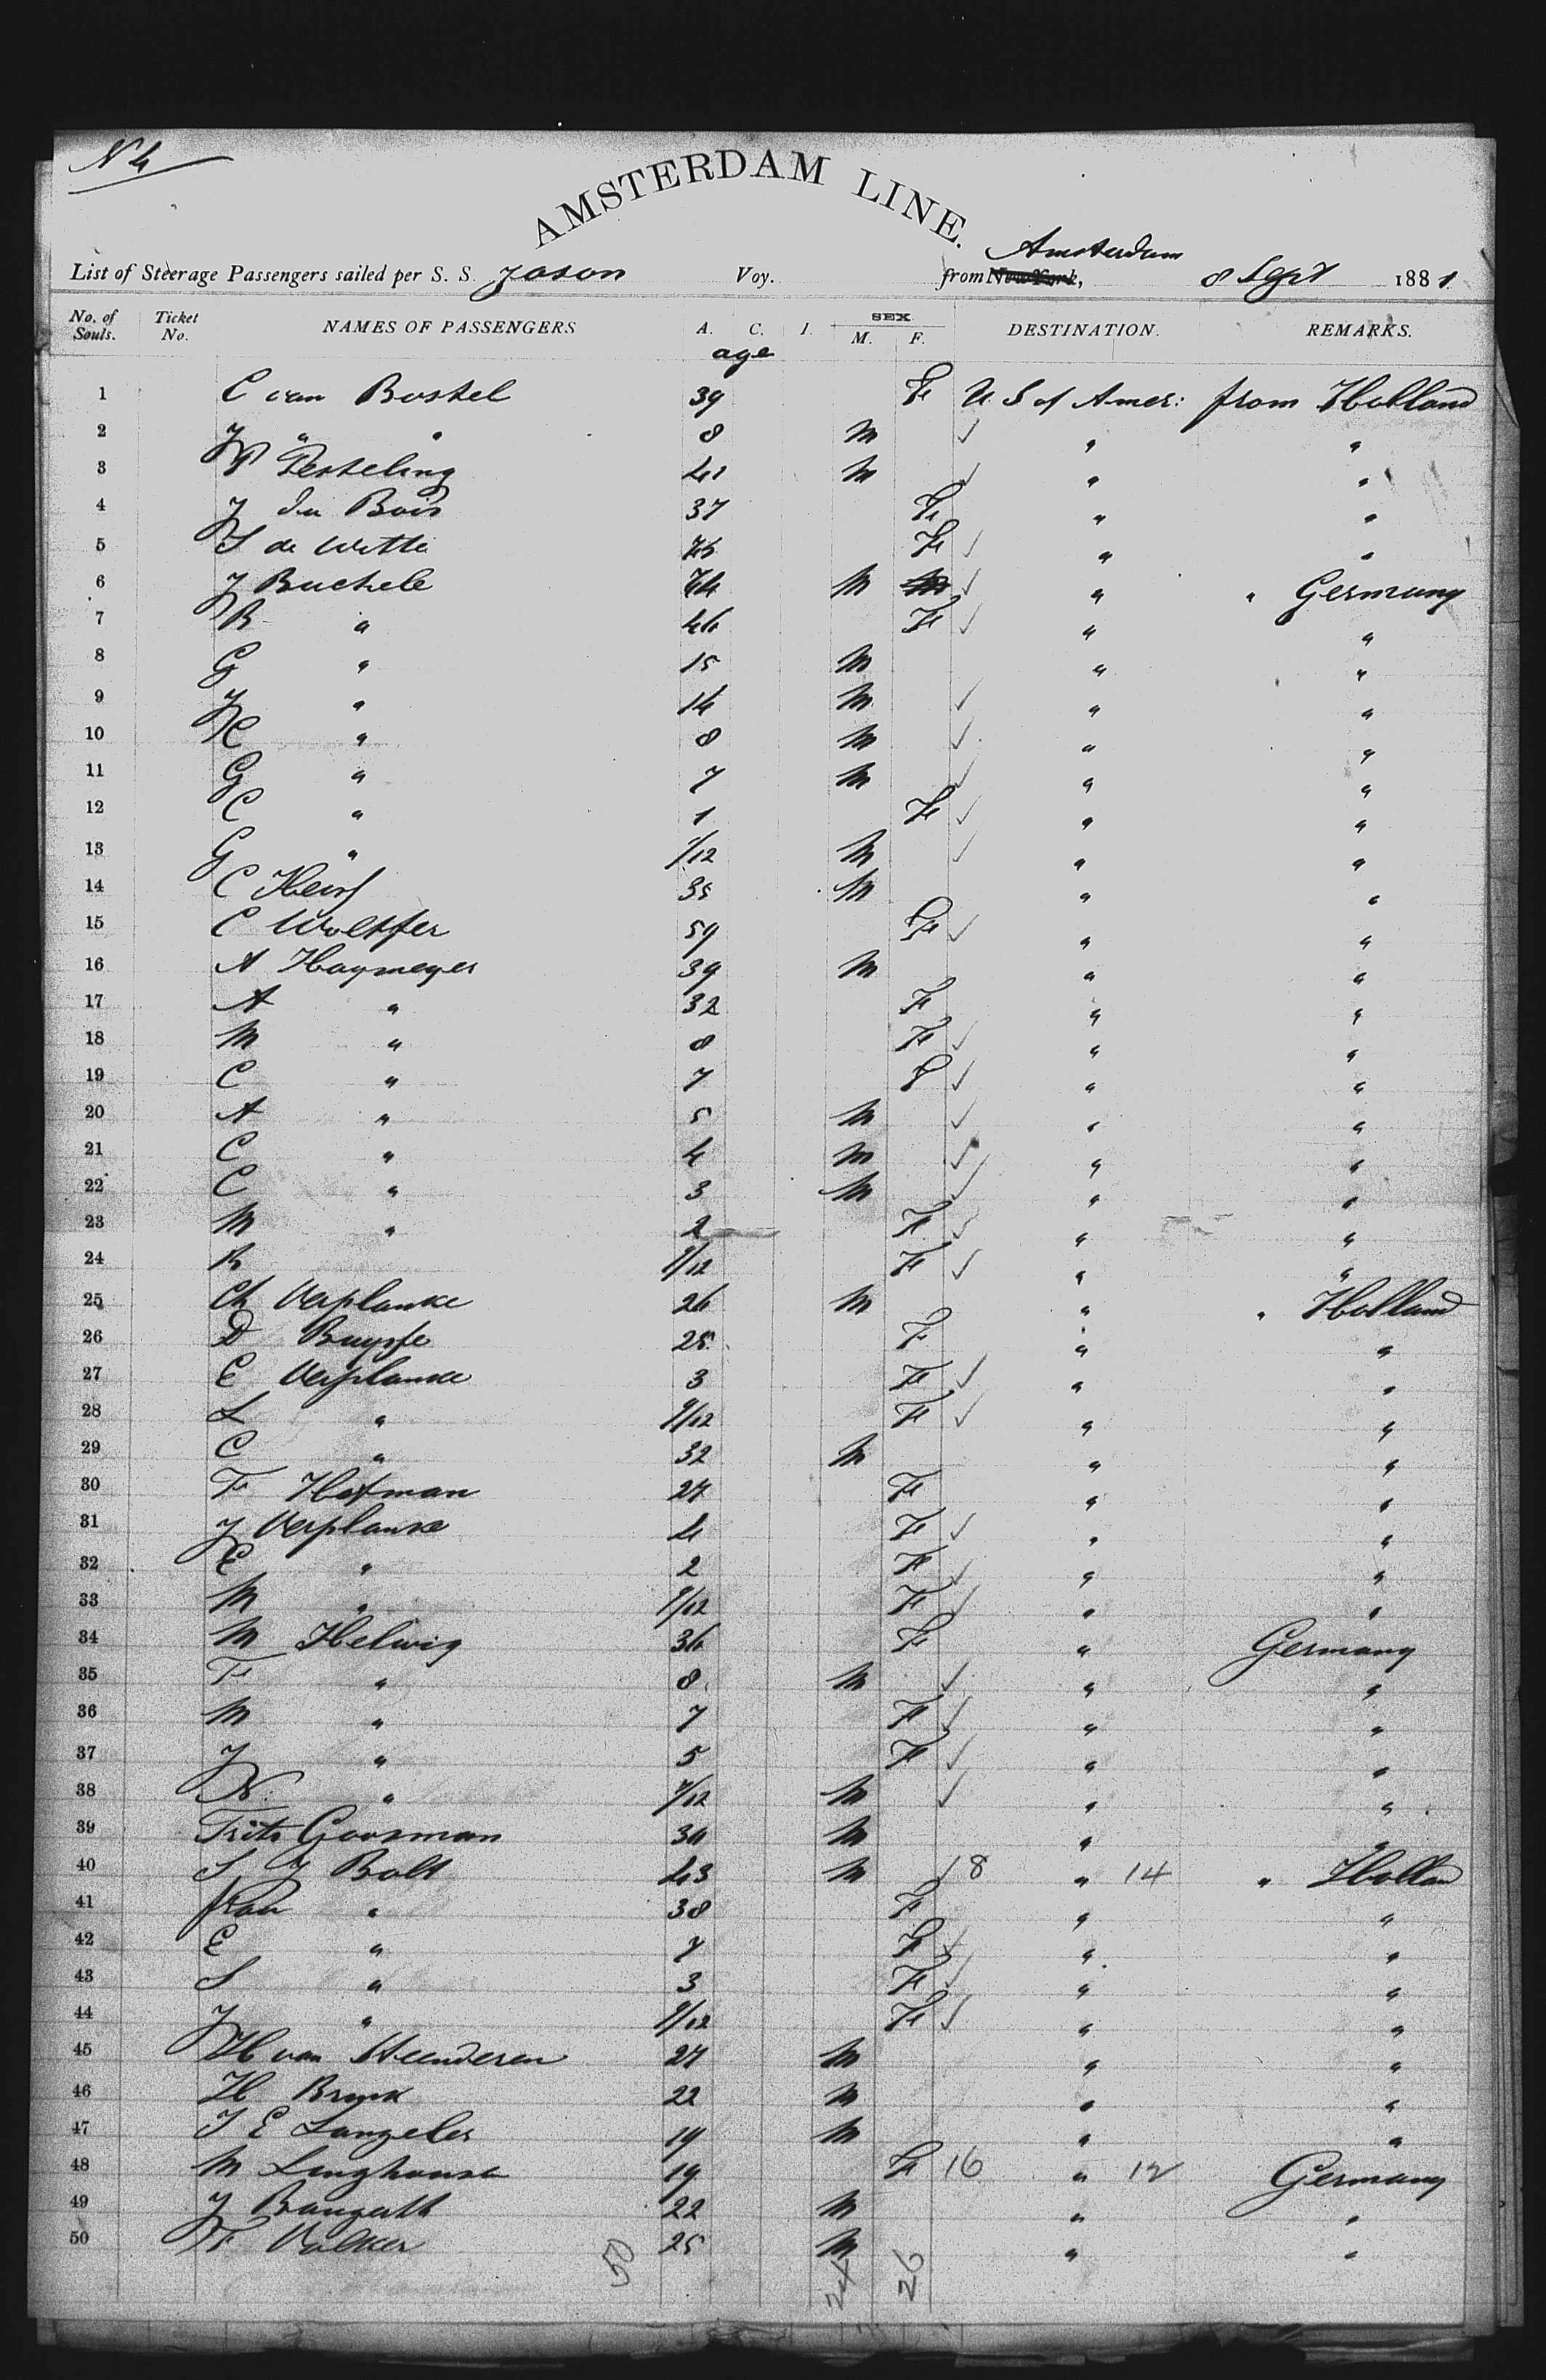 N 4
AMSTERDAM LINE.
List of Steerage Passengers sailed per S. S. Jason Voy. from New York, Amsterdam 8 Sept 1881
No. of Souls. Ticket No. NAMES OF PASSENGERS A. C. I. SEX M. F. DESTINATION. REMARKS.
age
1 C van Bostel 39 F U S of Amer: from Holland
2 J " " 8 M ✓ " "
3 W Pesteling 41 M ✓ " "
4 J du Bois 37 F " "
5 S de Witte F ✓ " "
6 J Buchele M M ✓ " " Germany
7 B " 46 F ✓ " "
8 G " 15 M " "
9 J " 14 M ✓ " "
10 K " 8 M ✓ " "
11 G " 7 M ✓ " "
12 C " 1 F ✓ " "
13 G " /12 M ✓ " "
14 C 35 M " "
15 C Wolffer 59 F ✓ " "
16 A Haymeyer 39 M " "
17 A " 32 F " "
18 M " 8 F ✓ " "
19 C " 7 F ✓ " "
20 A " 5 M ✓ " "
21 C " 4 M ✓ " "
22 C " 3 M ✓ " "
23 M " 2 F ✓ " "
24 R 9/12 F ✓ " "
25 Ch Verplanke 26 M " " Holland
26 D Buysse 25 F " "
27 E Verplanke 3 F ✓ " "
28 L " 9/12 F ✓ " "
29 C " 32 M " "
30 F Hofman 27 F " "
31 J Verplanke 4 F ✓ " "
32 E " 2 F ✓ " "
33 M " 9/12 F ✓ " "
34 M Helwig 36 F " Germany
35 F " 8 M ✓ " "
36 M " 7 F ✓ " "
37 J " 5 F ✓ " "
38 N " 9/12 M ✓ " "
39 Frits Goosman 30 M " "
40 S J Bolt 43 M ✓ 8 " 14 " Hollan
41 frau " 38 F " "
42 E " 7 F ✓ " "
43 S " 3 F ✓ " "
44 J " 9/12 F ✓ " "
45 H van Heenderen 27 M " "
46 H Bronk 22 M " "
47 J E Langeler 19 M " "
48 M Langhouse 19 F 16 " 12 Germany
49 J Bangerth 22 M " "
50 F Volker 25 M " "
50 24 26